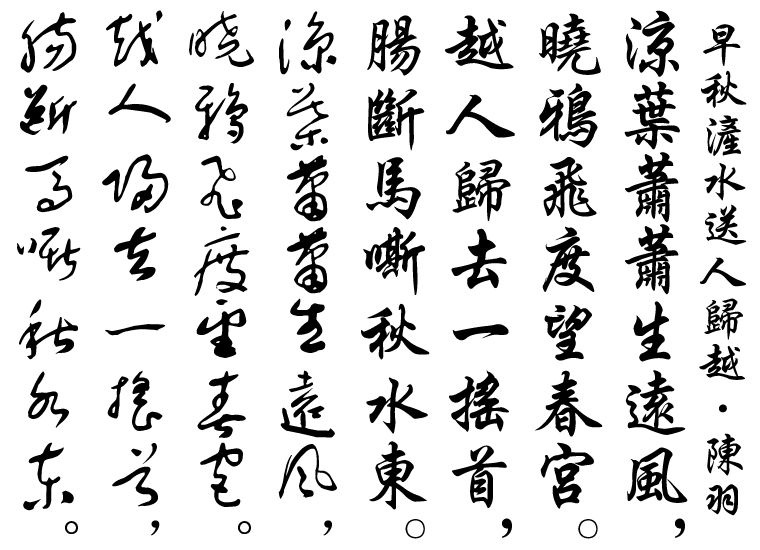 早秋滻水送人歸越・陳羽
涼葉蕭蕭生遠風，
曉鴉飛度望春宮。
越人歸去一搖首，
腸斷馬嘶秋水東。
涼葉蕭蕭生遠風，
曉鴉飛度望春宮。
越人歸去一搖首，
腸斷馬嘶秋水東。